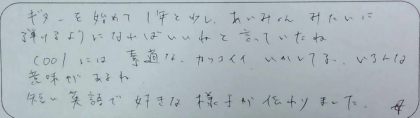 ギターを始めて1年と少し。あいみょんみたいに
弾けるようになればいいねと言っていたね
coolには 素適な、カッコイイ、いかしてる、いろんな
意味があるね
短い英語で好きな様子が伝わりました。